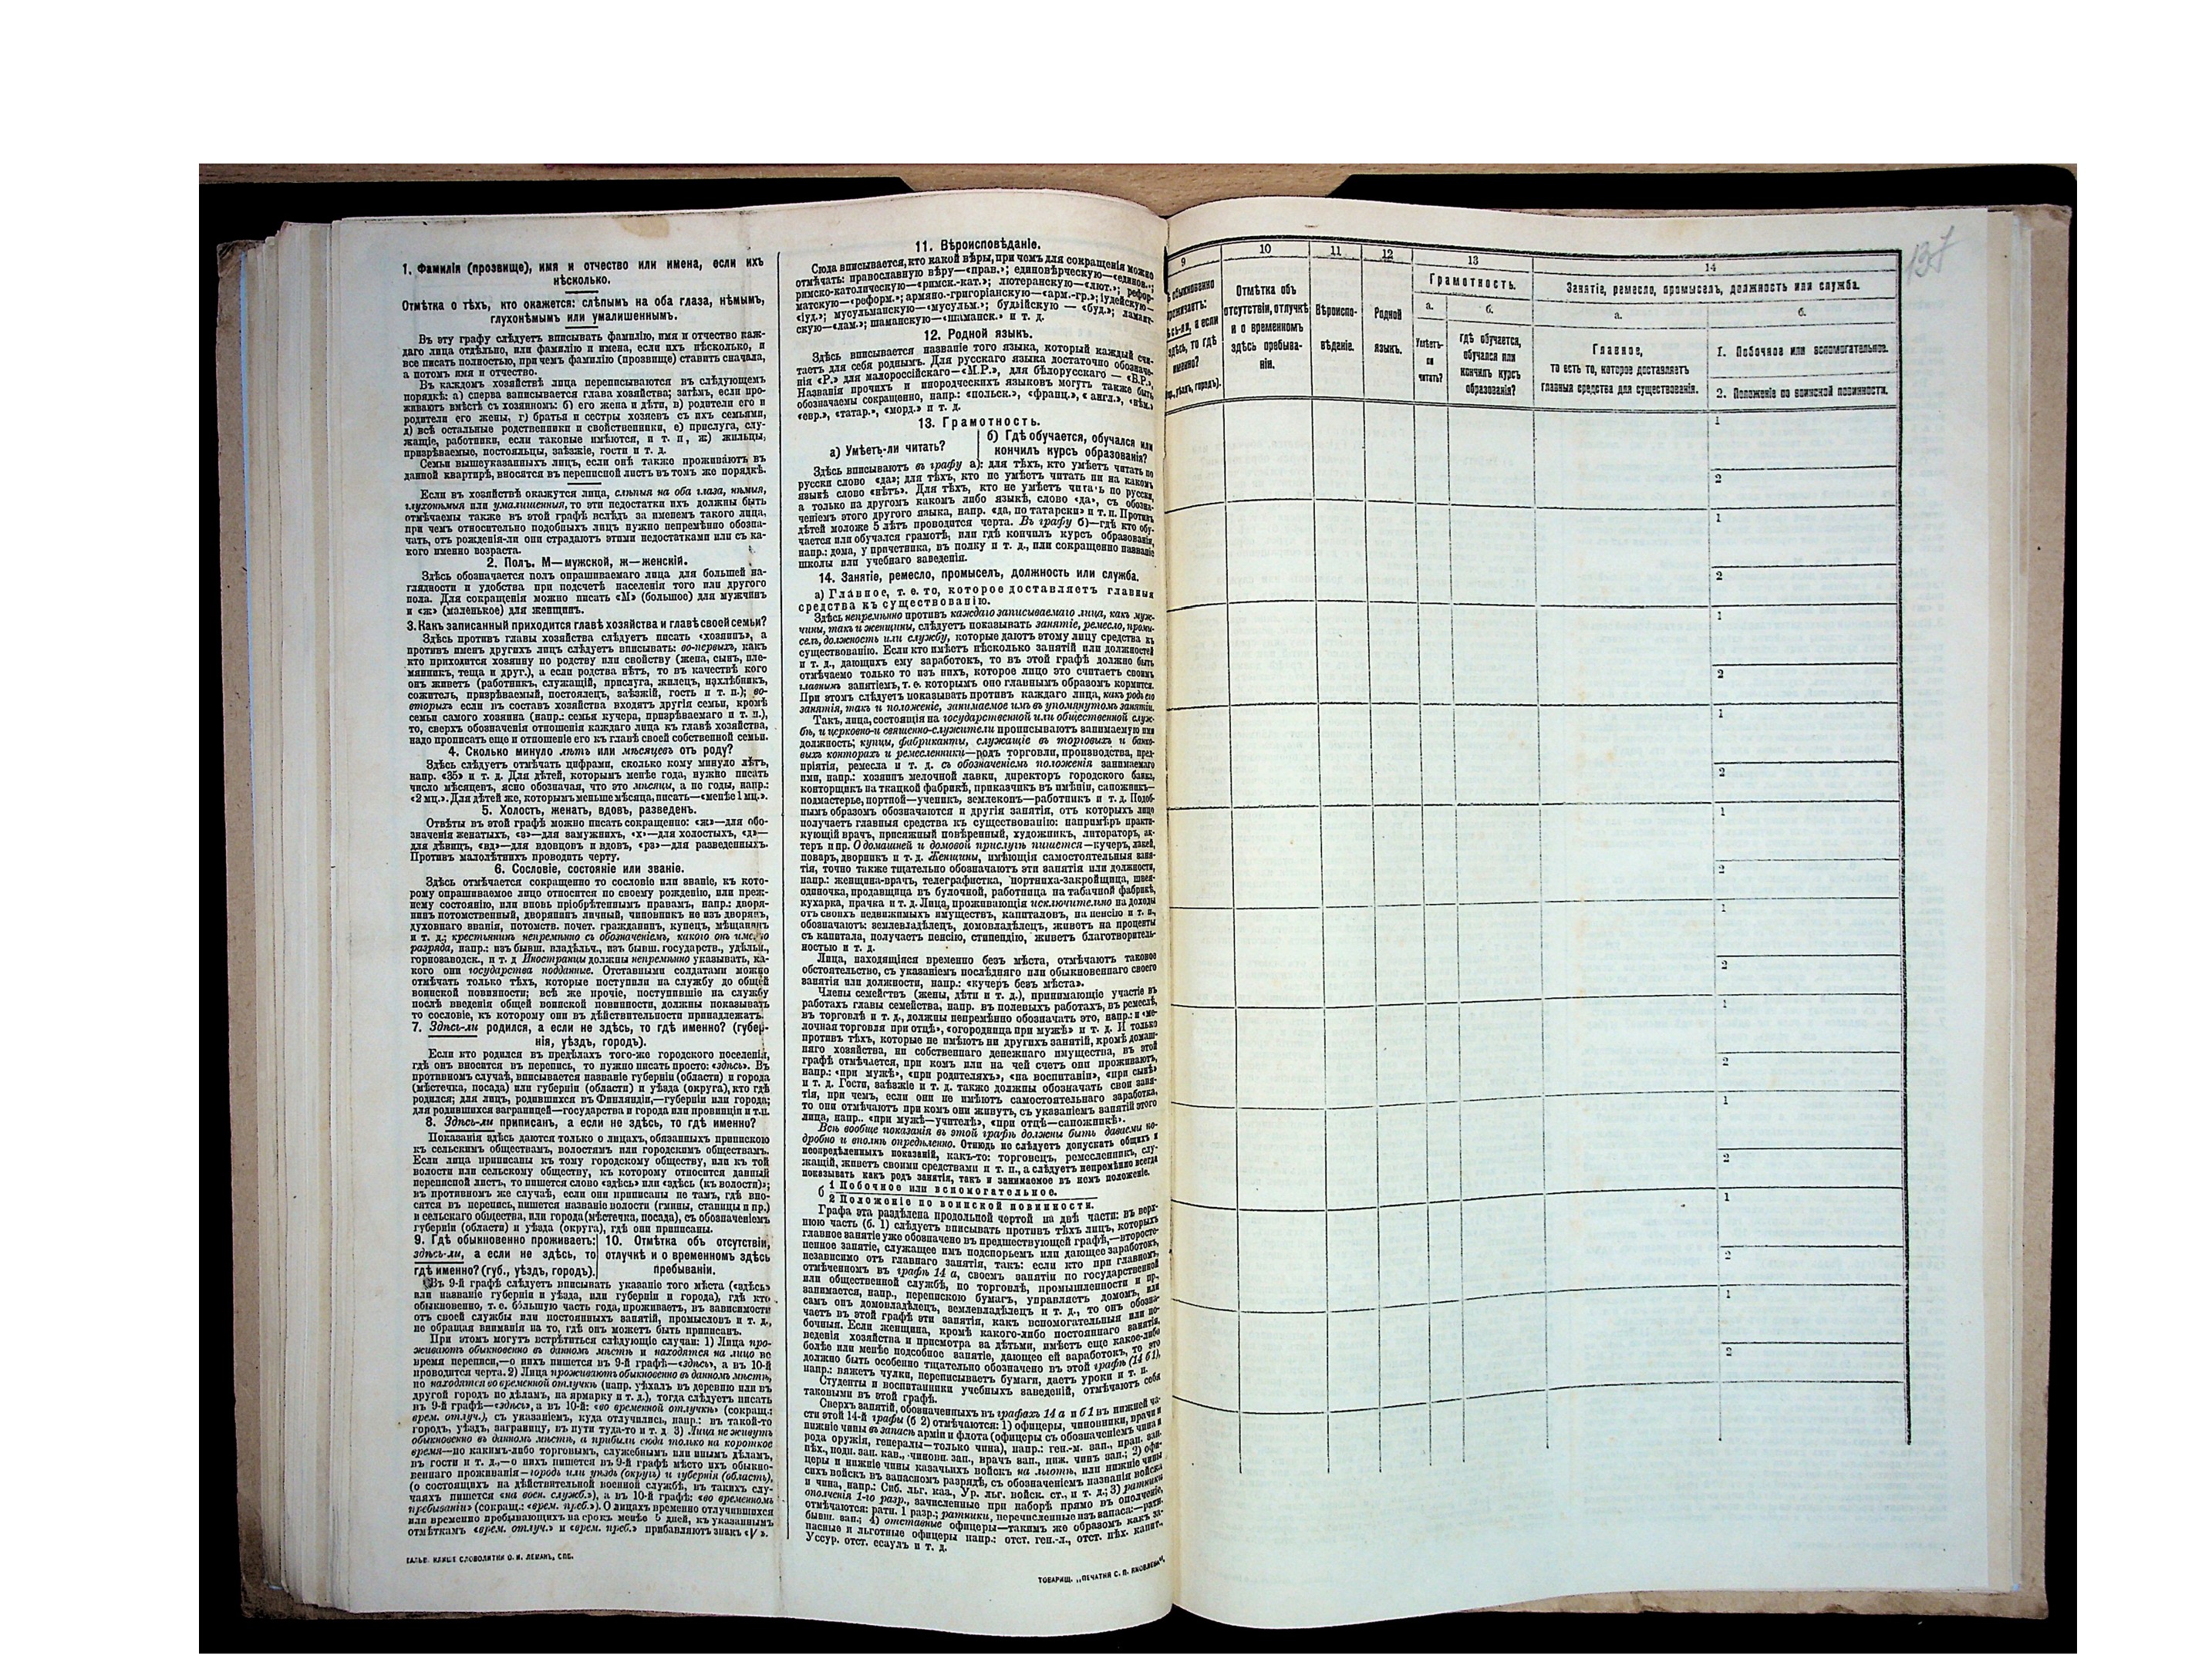 1. Фамилія (прозвище), имя и отчество или имена, если ихъ
нѣсколько.
Отмѣтка о тѣхъ, кто окажется: слѣпымъ на оба глаза, нѣмымъ,
глухонѣмымъ или умалишеннымъ.
Въ эту графу слѣдуетъ вписывать фамилію, имя и отчество каж-
даго лица отдѣльно, или фамилію и имена, если ихъ нѣсколько, и
все писать полностью, при чемъ фамилію (прозвище) ставить сначала,
а потомъ имя и отчество.
Въ каждомъ хозяйствѣ лица переписываются въ слѣдующемъ
порядкѣ: а) сперва записывается глава хозяйства; затѣмъ, если про-
живаютъ вмѣстѣ съ хозяиномъ: б) его жена и дѣти, в) родители его и
родители его жены, г) братья и сестры хозяевъ съ ихъ семьями,
д) всѣ остальные родственники и свойственники, е) прислуга, слу-
жащіе, работники, если таковые имѣются, и т. п, ж) жильцы,
призрѣваемые, постояльцы, заѣзжіе, гости и т. д.
Семьи вышеуказанныхъ лицъ, если онѣ также проживаютъ въ
данной квартирѣ, вносятся въ переписной листъ въ томъ же порядкѣ.
Если въ хозяйствѣ окажутся лица, слѣпыя на оба глаза, нѣмыя,
глухонѣмыя или умалишенныя, то эти недостатки ихъ должны быть
отмѣчаемы также въ этой графѣ вслѣдъ за именемъ такого лица,
при чемъ относительно подобныхъ лицъ нужно непремѣнно обозна-
чать, отъ рожденія-ли они страдаютъ этими недостатками или съ ка-
кого именно возраста.
2. Полъ. М—мужской, ж—женскій.
Здѣсь обозначается полъ опрашиваемаго лица для большей на-
глядности и удобства при подсчетѣ населенія того или другого
пола. Для сокращенія можно писать «М» (большое) для мужчинъ
и «ж» (маленькое) для женщинъ.
3. Какъ записанный приходится главѣ хозяйства и главѣ своей семьи?
Здѣсь противъ главы хозяйства слѣдуетъ писать «хозяинъ», а
противъ именъ другихъ лицъ слѣдуетъ вписывать: во-первыхъ, какъ
кто приходится хозяину по родству или свойству (жена, сынъ, пле-
мянникъ, теща и друг.), а если родства нѣтъ, то въ качествѣ кого
онъ живетъ (работникъ, служащій, прислуга, жилецъ, нахлѣбникъ,
сожитель, призрѣваемый, постоялецъ, заѣзжій, гость и т. п.); во-
вторыхъ если въ составъ хозяйства входятъ другія семьи, кромѣ
семьи самого хозяина (напр.: семья кучера, призрѣваемаго и т. п.),
то, сверхъ обозначенія отношенія каждаго лица къ главѣ хозяйства,
надо прописать еще и отношеніе его къ главѣ своей собственной семьи.
4. Сколько минуло лѣтъ или мѣсяцевъ отъ роду?
Здѣсь слѣдуетъ отмѣчать цифрами, сколько кому минуло лѣтъ,
напр. «35» и т. д. Для дѣтей, которымъ менѣе года, нужно писать
число мѣсяцевъ, ясно обозначая, что это мѣсяцы, а не годы, напр.:
«2 мц.». Для дѣтей же, которымъ меньше мѣсяца, писать—«менѣе 1 мц.».
5. Холостъ, женатъ, вдовъ, разведенъ.
Отвѣты въ этой графѣ можно писать сокращенно: «ж»—для обо-
значенія женатыхъ, «з»—для замужнихъ, «х»—для холостыхъ, «д»—
для дѣвицъ, «вд»—для вдовцовъ и вдовъ, «рз»—для разведенныхъ.
Противъ малолѣтнихъ проводить черту.
6. Сословіе, состояніе или званіе.
Здѣсь отмѣчается сокращенно то сословіе или званіе, къ кото-
рому опрашиваемое лицо относится по своему рожденію, или преж-
нему состоянію, или вновь пріобрѣтеннымъ правамъ, напр.: дворя-
нинъ потомственный, дворянинъ личный, чиновникъ не изъ дворянъ,
духовнаго званія, потомств. почет. гражданинъ, купецъ, мѣщанинъ
и т. д.; крестьянинъ непремѣнно съ обозначеніемъ, какого онъ именно
разряда, напр.: изъ бывш. владѣльч., изъ бывш. государств., удѣльн.,
горнозаводск., и т. д Иностранцы должны непремѣнно указывать, ка-
кого они государства подданные. Отставными солдатами можно
отмѣчать только тѣхъ, которые поступили на службу до общей
воинской повинности; всѣ же прочіе, поступившіе на службу
послѣ введенія общей воинской повинности, должны показывать
то сословіе, къ которому они въ дѣйствительности принадлежатъ.
7. Здѣсь-ли родился, а если не здѣсь, то гдѣ именно? (губер-
нія, уѣздъ, городъ).
Если кто родился въ предѣлахъ того-же городского поселенія,
гдѣ онъ вносится въ перепись, то нужно писать просто: «здѣсь». Въ
противномъ случаѣ, вписывается названіе губерніи (области) и города
(мѣстечка, посада) или губерніи (области) и уѣзда (округа), кто гдѣ
родился; для лицъ, родившихся въ Финляндіи,—губерніи или города;
для родившихся заграницей—государства и города или провинціи и т.п.
8. Здѣсь-ли приписанъ, а если не здѣсь, то гдѣ именно?
Показанія здѣсь даются только о лицахъ, обязанныхъ припискою
къ сельскимъ обществамъ, волостямъ или городскимъ обществамъ.
Если лица приписаны къ тому городскому обществу, или къ той
волости или сельскому обществу, къ которому относится данный
переписной листъ, то пишется слово «здѣсь» или «здѣсь (къ волости)»;
въ противномъ же случаѣ, если они приписаны не тамъ, гдѣ вно-
сятся въ перепись, пишется названіе волости (гмины, станицы и пр.)
и сельскаго общества, или города (мѣстечка, посада), съ обозначеніемъ
губерніи (области) и уѣзда (округа), гдѣ они приписаны.
9. Гдѣ обыкновенно проживаетъ:
здѣсь-ли, а если не здѣсь, то
гдѣ именно? (губ., уѣздъ, городъ).
10. Отмѣтка объ отсутствіи,
отлучкѣ и о временномъ здѣсь
пребываніи.
Въ 9-й графѣ слѣдуетъ вписывать указаніе того мѣста («здѣсь»
или названіе губерніи и уѣзда, или губерніи и города), гдѣ кто
обыкновенно, т. е. бо́льшую часть года, проживаетъ, въ зависимости
отъ своей службы или постоянныхъ занятій, промысловъ и т. д.,
не обращая вниманія на то, гдѣ онъ можетъ быть приписанъ.
При этомъ могутъ встрѣтиться слѣдующіе случаи: 1) Лица про-
живаютъ обыкновенно въ данномъ мѣстѣ и находятся на лицо во
время переписи,—о нихъ пишется въ 9-й графѣ—«здѣсь», а въ 10-й
проводится черта. 2) Лица проживаютъ обыкновенно въ данномъ мѣстѣ,
но находятся во временной отлучкѣ (напр. уѣхалъ въ деревню или въ
другой городъ по дѣламъ, на ярмарку и т. д.), тогда слѣдуетъ писать
въ 9-й графѣ—«здѣсь», а въ 10-й: «во временной отлучкѣ» (сокращ.:
врем. отлуч.), съ указаніемъ, куда отлучились, напр.: въ такой-то
городъ, уѣздъ, заграницу, въ пути туда-то и т. д 3) Лица не живутъ
обыкновенно въ данномъ мѣстѣ, а прибыли сюда только на короткое
время—по какимъ-либо торговымъ, служебнымъ или инымъ дѣламъ,
въ гости и т. д.,—о нихъ пишется въ 9-й графѣ мѣсто ихъ обыкно-
веннаго проживанія—городъ или уѣздъ (округъ) и губернія (область),
(о состоящихъ на дѣйствительной военной службѣ, въ такихъ слу-
чаяхъ пишется «на воен. служб.»), а въ 10-й графѣ: «во временномъ
пребываніи» (сокращ.: «врем. преб.»). О лицахъ временно отлучившихся
или временно пребывающихъ на срокъ менѣе 5 дней, къ указаннымъ
отмѣткамъ «врем. отлуч.» и «врем. преб.» прибавляютъ знакъ «V».
КЛИШЕ СЛОВОЛИТНИ О. И. ЛЕМАНЪ, СПБ.
11. Вѣроисповѣданіе.
Сюда вписывается, кто какой вѣры, при чемъ для сокращенія можно
отмѣчать: православную вѣру—«прав.»; единовѣрческую—«единов.»;
римско-католическую—«римск.-кат.»; лютеранскую—«лют.»; рефор-
матскую—«реформ.»; армяно.-григоріанскую—«арм.-гр.»; іудейскую—
«іуд.»; мусульманскую—«мусульм.»; буддійскую — «буд.»; ламаит-
скую—«лам.»; шаманскую—«шаманск.» и т. д.
12. Родной языкъ.
Здѣсь вписывается названіе того языка, который каждый счи-
таетъ для себя роднымъ. Для русскаго языка достаточно обозначе-
нія «Р.» для малороссійскаго—«М.Р.», для бѣлорусскаго — «Б.Р.».
Названія прочихъ и инородческихъ языковъ могутъ также быть
обозначаемы сокращенно, напр.: «польск.», «франц.», «англ.», «нѣм.»
«евр.», «татар.», «морд.» и т. д.
13. Грамотность.
а) Умѣетъ-ли читать?
б) Гдѣ обучается, обучался или
кончилъ курсъ образованія?
Здѣсь вписываютъ въ графу а): для тѣхъ, кто умѣетъ читать по
русски слово «да»; для тѣхъ, кто не умѣетъ читать ни на какомъ
языкѣ слово «нѣтъ». Для тѣхъ, кто не умѣетъ читать по русски,
а только на другомъ какомъ либо языкѣ, слово «да», съ обозна-
ченіемъ этого другого языка, напр. «да, по татарски» и т. п. Противъ
дѣтей моложе 5 лѣтъ проводится черта. Въ графу б)—гдѣ кто обу-
чается или обучался грамотѣ, или гдѣ кончилъ курсъ образованія,
напр.: дома, у причетника, въ полку и т. д., или сокращенно названіе
школы или учебнаго заведенія.
14. Занятіе, ремесло, промыселъ, должность или служба.
а) Главное, т. е. то, которое доставляетъ главныя
средства къ существованію.
Здѣсь непремѣнно противъ каждаго записываемаго лица, какъ муж-
чины, такъ и женщины, слѣдуетъ показывать занятіе, ремесло, промы-
селъ, должность или службу, которые даютъ этому лицу средства къ
существованію. Если кто имѣетъ нѣсколько занятій или должностей
и т. д., дающихъ ему заработокъ, то въ этой графѣ должно быть
отмѣчаемо только то изъ нихъ, которое лицо это считаетъ своимъ
главнымъ занятіемъ, т. е. которымъ оно главнымъ образомъ кормится.
При этомъ слѣдуетъ показывать противъ каждаго лица, какъ родъ его
занятія, такъ и положеніе, занимаемое имъ въ упомянутомъ занятіи.
Такъ, лица, состоящія на государственной или общественной служ-
бѣ, и церковно-и священно-служители прописываютъ занимаемую ими
должность; купцы, фабриканты, служащіе въ торговыхъ и банко-
выхъ конторахъ и ремесленники—родъ торговли, производства, пред-
пріятія, ремесла и т. д. съ обозначеніемъ положенія занимаемаго
ими, напр.: хозяинъ мелочной лавки, директоръ городского банка,
конторщикъ на ткацкой фабрикѣ, приказчикъ въ имѣніи, сапожникъ—
подмастерье, портной—ученикъ, землекопъ—работникъ и т. д. Подоб-
нымъ образомъ обозначаются и другія занятія, отъ которыхъ лицо
получаетъ главныя средства къ существованію: напримѣръ практи-
кующій врачъ, присяжный повѣренный, художникъ, литераторъ, ак-
теръ и пр. О домашней и домовой прислугѣ пишется—кучеръ, лакей,
поваръ, дворникъ и т. д. Женщины, имѣющія самостоятельныя заня-
тія, точно также тщательно обозначаютъ эти занятія или должности,
напр.: женщина-врачъ, телеграфистка, портниха-закройщица, швея-
одиночка, продавщица въ булочной, работница на табачной фабрикѣ,
кухарка, прачка и т. д. Лица, проживающія исключительно на доходы
отъ своихъ недвижимыхъ имуществъ, капиталовъ, на пенсію и т. п.,
обозначаютъ: землевладѣлецъ, домовладѣлецъ, живетъ на проценты
съ капитала, получаетъ пенсію, стипендію, живетъ благотворитель-
ностью и т. д.
Лица, находящіяся временно безъ мѣста, отмѣчаютъ таковое
обстоятельство, съ указаніемъ послѣдняго или обыкновеннаго своего
занятія или должности, напр.: «кучеръ безъ мѣста».
Члены семействъ (жены, дѣти и т. д.), принимающіе участіе въ
работахъ главы семейства, напр. въ полевыхъ работахъ, въ ремеслѣ,
въ торговлѣ и т. д., должны непремѣнно обозначать это, напр.: «ме-
лочная торговля при отцѣ», «огородница при мужѣ» и т. д. И только
противъ тѣхъ, которые не имѣютъ ни другихъ занятій, кромѣ домаш-
няго хозяйства, ни собственнаго денежнаго имущества, въ этой
графѣ отмѣчается, при комъ или на чей счетъ они проживаютъ,
напр.: «при мужѣ», «при родителяхъ», «на воспитаніи», «при сынѣ»
и т. д. Гости, заѣзжіе и т. д. также должны обозначать свои заня-
тія, при чемъ, если они не имѣютъ самостоятельнаго заработка,
то они отмѣчаютъ при комъ они живутъ, съ указаніемъ занятій этого
лица, напр.. «при мужѣ—учителѣ», «при отцѣ—сапожникѣ».
Всѣ вообще показанія въ этой графѣ должны быть даваемы по-
дробно и вполнѣ опредѣленно. Отнюдь не слѣдуетъ допускать общихъ и
неопредѣленныхъ показаній, какъ-то: торговецъ, ремесленникъ, слу-
жащій, живетъ своими средствами и т. п., а слѣдуетъ непремѣнно всегда
показывать какъ родъ занятія, такъ и занимаемое въ немъ положеніе.
б 1 Побочное или вспомогательное.
2 Положеніе по воинской повинности.
Графа эта раздѣлена продольной чертой на двѣ части: въ верх-
нюю часть (б. 1) слѣдуетъ вписывать противъ тѣхъ лицъ, которыхъ
главное занятіе уже обозначено въ предшествующей графѣ,—второсте-
пенное занятіе, служащее имъ подспорьемъ или дающее заработокъ,
независимо отъ главнаго занятія, такъ: если кто при главномъ,
отмѣченномъ въ графѣ 14 а, своемъ занятіи по государственной
или общественной службѣ, по торговлѣ, промышленности и пр.,
занимается, напр., перепискою бумагъ, управляетъ домомъ, или
самъ онъ домовладѣлецъ, землевладѣлецъ и т. д., то онъ обозна-
чаетъ въ этой графѣ эти занятія, какъ вспомогательныя или по-
бочныя. Если женщина, кромѣ какого-либо постояннаго занятія,
веденія хозяйства и присмотра за дѣтьми, имѣетъ еще какое-либо
болѣе или менѣе подсобное занятіе, дающее ей заработокъ, то это
должно быть особенно тщательно обозначено въ этой графѣ (14 б 1),
напр.: вяжетъ чулки, переписываетъ бумаги, даетъ уроки и т. п.
Студенты и воспитанники учебныхъ заведеній, отмѣчаютъ себя
таковыми въ этой графѣ.
Сверхъ занятій, обозначенныхъ въ графахъ 14 а и б 1 въ нижней ча-
сти этой 14-й графы (б 2) отмѣчаются: 1) офицеры, чиновники, врачи и
нижніе чины въ запасѣ арміи и флота (офицеры съ обозначеніемъ чина и
рода оружія, генералы—только чина), напр.: ген-м. зап., прап. зап.
пѣх., подп. зап. кав., чиновн. зап., врачъ зап., ниж. чинъ зап.; 2) офи-
церы и нижніе чины казачьихъ войскъ на льготѣ, или нижніе чины
сихъ войскъ въ запасномъ разрядѣ, съ обозначеніемъ названія войска
и чина, напр.: Сиб. льг. каз., Ур. льг. войск. ст., и т. д.; 3) ратники
ополченія 1-го разр., зачисленные при наборѣ прямо въ ополченіе,
отмѣчаются: ратн. 1 разр.; ратники, перечисленные изъ запаса:—ратн.
бывш. зап.; 4) отставные офицеры—такимъ же образомъ какъ за-
пасные и льготные офицеры напр.: отст. ген.-л., отст. пѣх. капит.,
Уссур. отст. есаулъ и т. д.
ТОВАРИЩ. „ПЕЧАТНЯ С. П. ЯКОВЛЕВА“,
137
9
10
11
12
13
14
обыкновенно
если
здѣсь, то гдѣ
именно?
уѣздъ, городъ).
Отмѣтка объ
отсутствіи, отлучкѣ
и о временномъ
здѣсь пребыва-
ніи.
Вѣроиспо-
вѣданіе.
Родной
языкъ.
Грамотность.
а.
Умѣетъ-
ли
читать?
б.
Гдѣ обучается,
обучался или
кончилъ курсъ
образованія?
Занятіе, ремесло, промыселъ, должность или служба.
а.
Главное,
то есть то, которое доставляетъ
главныя средства для существованія.
б.
1. Побочное или вспомогательное.
2. Положеніе по воинской повинности.
1
2
1
2
1
2
1
2
1
2
1
2
1
2
1
2
1
2
1
2